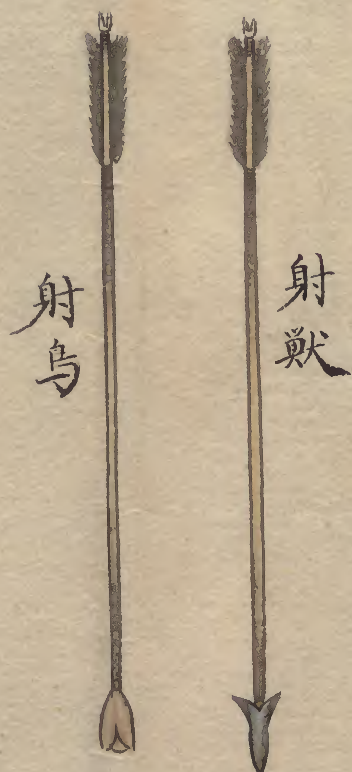 射獣
射鳥